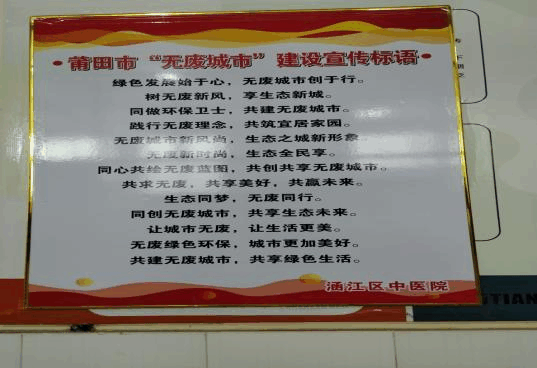 ·莆田市“无废城市”建设宣传标语·
绿色发展始于心，无废城市创于行。
树无废新风，享生态新城。
同做环保卫士，共建无废城市。
践行无废理念，共筑宜居家园。
无废城市新风尚，生态之城新形象。
无废新时尚，生态全民享。
同心共绘无废蓝图，共创共享无废城市。
共求无废，共享美好，共赢未来。
生态同梦，无废同行。
同创无废城市，共享生态未来。
让城市无废，让生活更美。
无废绿色环保，城市更加美好。
共建无废城市，共享绿色生活。
涵江区中医院